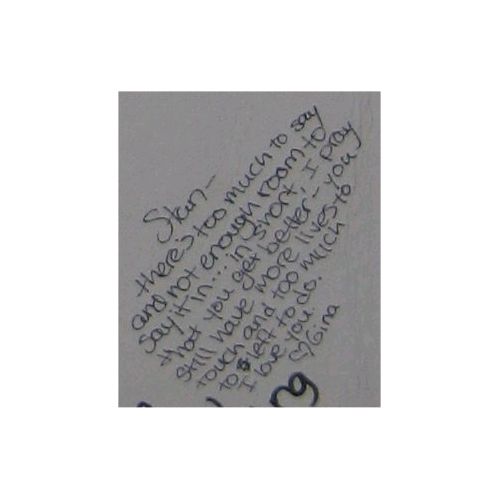 Stan—
there's too much to say
and not enough room to
say it in... in short, I pray
that you get better - you
still have more lives to
touch and too much
to left to do.
I love you.
♡Gina